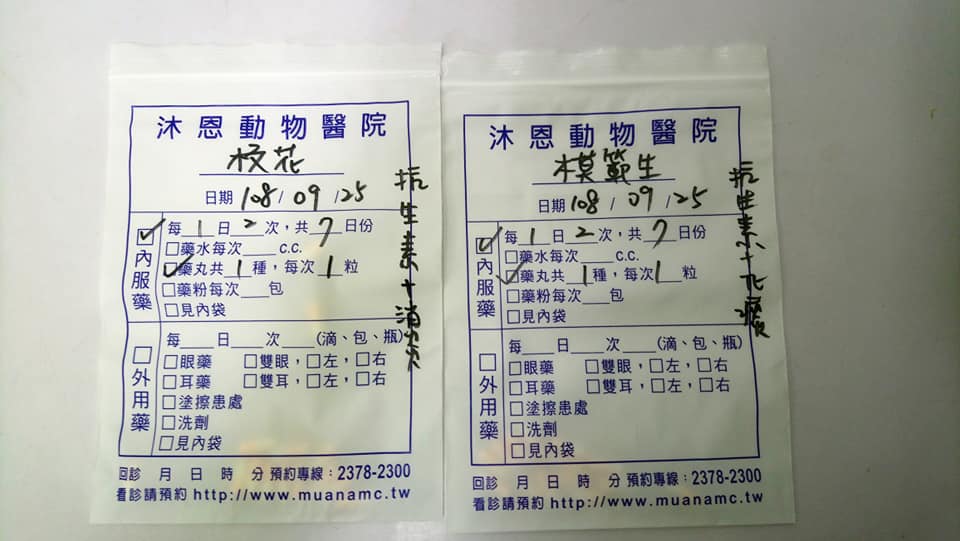 沐恩動物醫院
校花
日期 108/09/25
✓ □內服藥
每1日2次，共7日份
□藥水每次___c.c.
✓□藥丸共1種，每次1粒
□藥粉每次___包
□見內袋
抗生素+消炎
□外用藥
每___日___次___(滴、包、瓶)
□眼藥 □雙眼，□左，□右
□耳藥 □雙耳，□左，□右
□塗擦患處
□洗劑
□見內袋
回診 月 日 時 分 預約專線：2378-2300
看診請預約 http://www.muanamc.tw
沐恩動物醫院
模範生
日期 108/09/25
✓ □內服藥
每1日2次，共7日份
□藥水每次___c.c.
✓□藥丸共1種，每次1粒
□藥粉每次___包
□見內袋
抗生素+化
□外用藥
每___日___次___(滴、包、瓶)
□眼藥 □雙眼，□左，□右
□耳藥 □雙耳，□左，□右
□塗擦患處
□洗劑
□見內袋
回診 月 日 時 分 預約專線：2378-2300
看診請預約 http://www.muanamc.tw